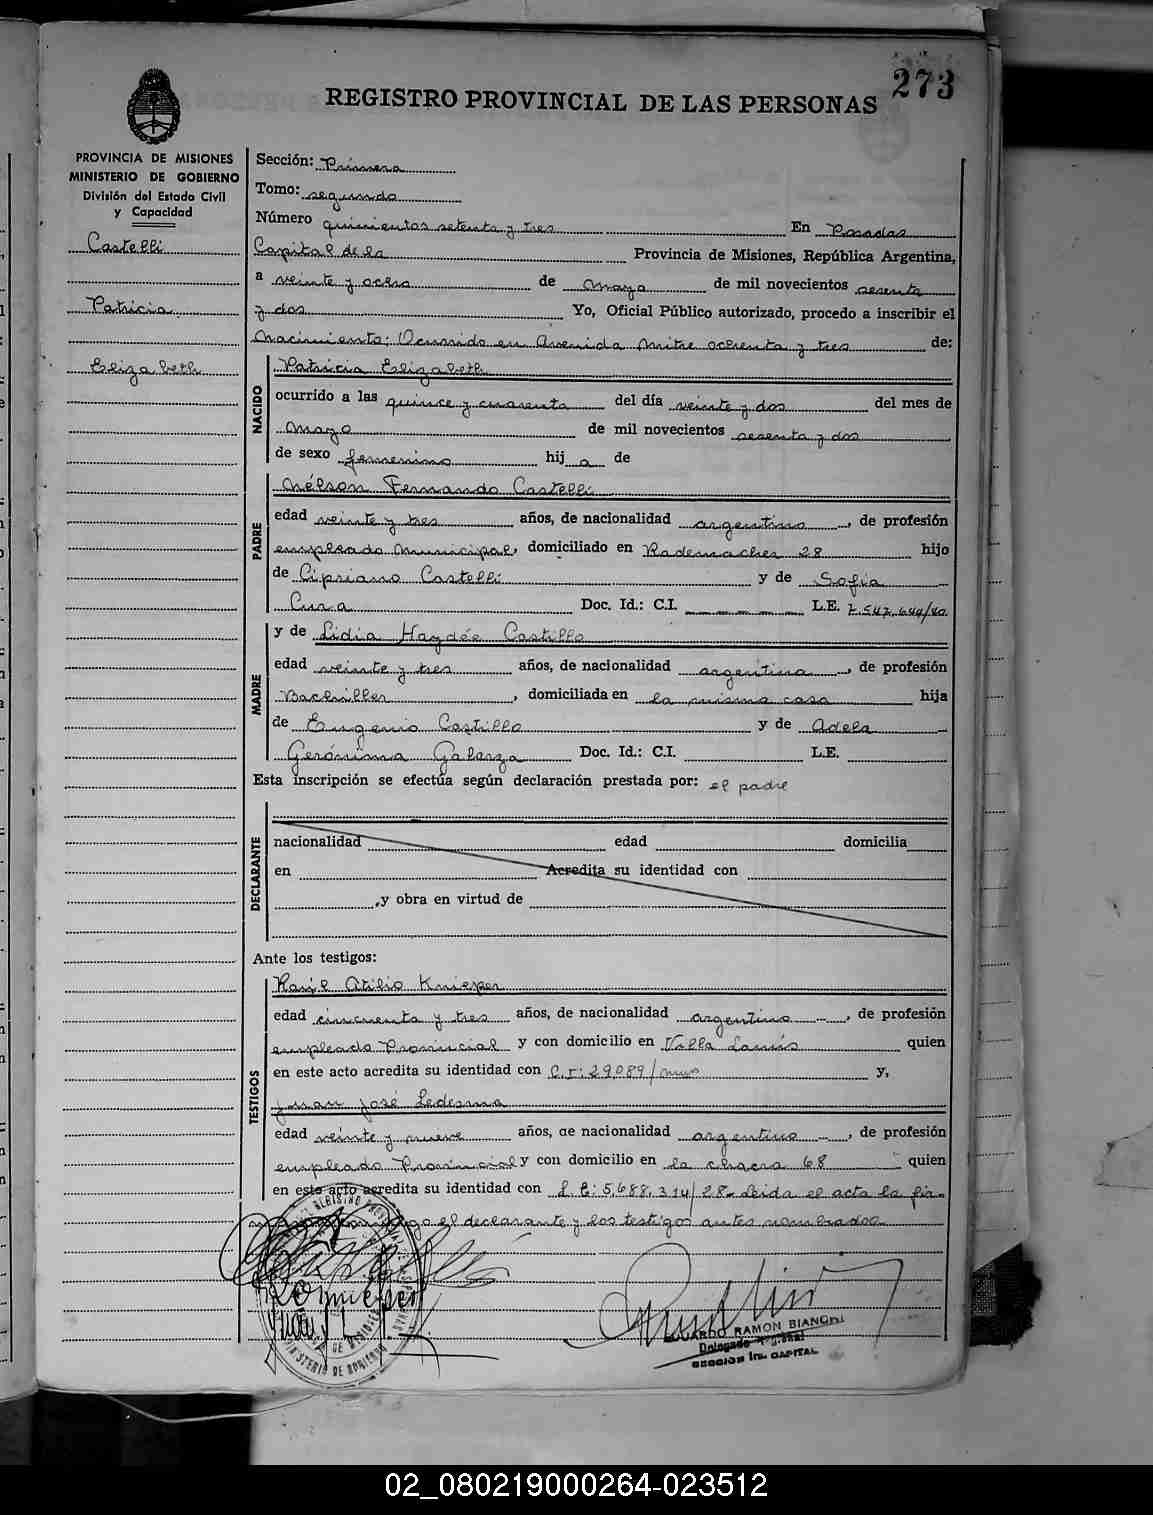 273
REGISTRO PROVINCIAL DE LAS PERSONAS
PROVINCIA DE MISIONES
MINISTERIO DE GOBIERNO
División del Estado Civil
y Capacidad
Castelli
Patricia
Elizabeth
Sección: Primera
Tomo: segundo
Número quinientos setenta y tres En Posadas
Capital de la Provincia de Misiones, República Argentina,
a veinte y ocho de mayo de mil novecientos sesenta
y dos Yo, Oficial Público autorizado, procedo a inscribir el
Nacimiento: Ocurrido en Avenida Mitre ochenta y tres de:
NACIDO
Patricia Elizabeth
ocurrido a las quince y cuarenta del día veinte y dos del mes de
Mayo de mil novecientos sesenta y dos
de sexo femenino hij a de
PADRE
Nélson Fernando Castelli
edad veinte y tres años, de nacionalidad argentino, de profesión
empleado Municipal, domiciliado en Rademacher 28 hijo
de Cipriano Castelli y de Sofía
Cura Doc. Id.: C.I. L.E. 7.547.644/40
MADRE
y de Lidia Haydée Castillo
edad veinte y tres años, de nacionalidad argentina, de profesión
Bachiller, domiciliada en la misma casa hija
de Eugenio Castillo y de Adela
Gerónima Galarza Doc. Id.: C.I. L.E.
Esta inscripción se efectúa según declaración prestada por: el padre
DECLARANTE
nacionalidad edad domicilia
en Acredita su identidad con
, y obra en virtud de
Ante los testigos:
TESTIGOS
Raúl Atilio Knieper
edad cincuenta y tres años, de nacionalidad argentino, de profesión
empleado Provincial y con domicilio en Villa Lanús quien
en este acto acredita su identidad con C.I: 29.089/mnes y,
Juan José Ledesma
edad veinte y nueve años, de nacionalidad argentino, de profesión
empleado Provincial y con domicilio en la chacra 68 quien
en este acto acredita su identidad con L.E: 5.688.314/28. Leida el acta la fir-
el declarante y los testigos antes nombrados.
EDUARDO RAMON BIANCHI
Delegado Regional
SECCION 1ra. CAPITAL
02_080219000264-023512